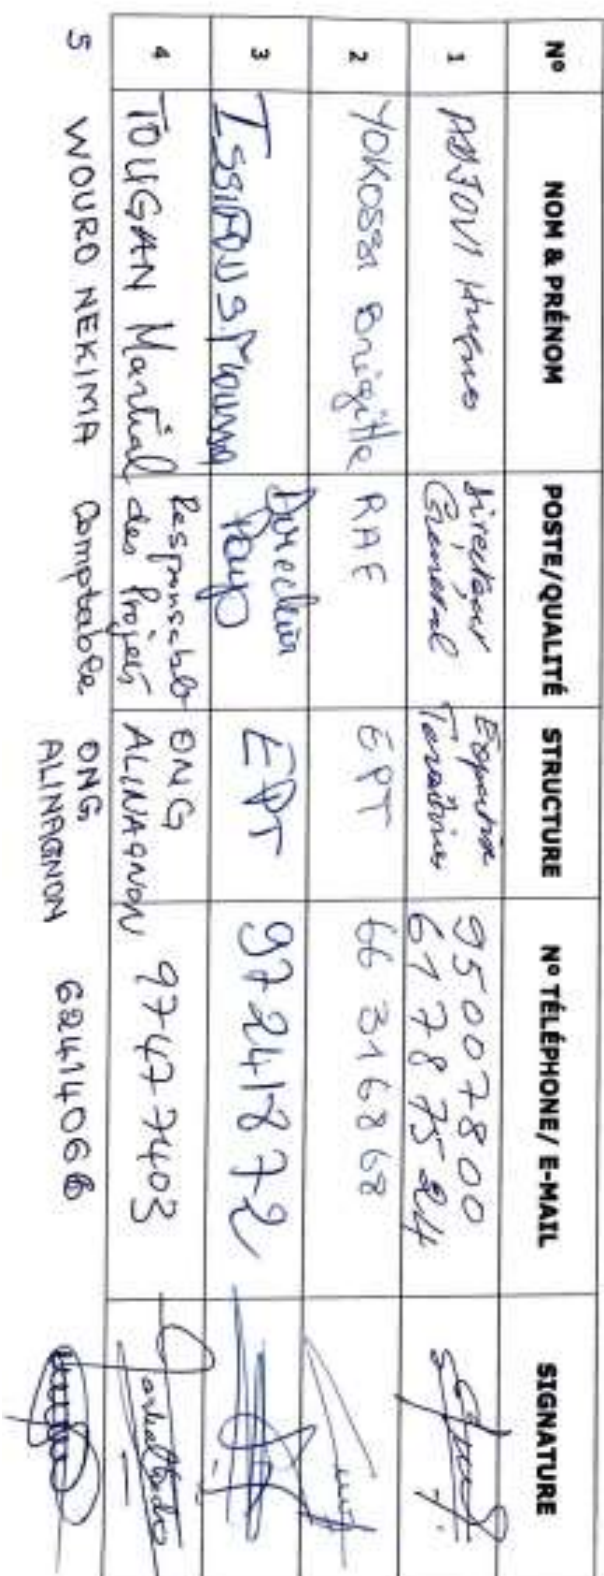 N° NOM & PRÉNOM POSTE/QUALITÉ STRUCTURE N° TÉLÉPHONE/ E-MAIL SIGNATURE
1 ADJOVI Directeur Général Expertise 95007800
61787524
2 YOKOSSI Brigitte RAF EPT 66 316868
3 ISSIFOU S. Directeur Pays EPT 97241872
4 TOUGAN Martial Responsable des Projets ONG ALINAGNON 97477403
5 WOURO NEKIMA Comptable ONG ALINAGNON 62414066